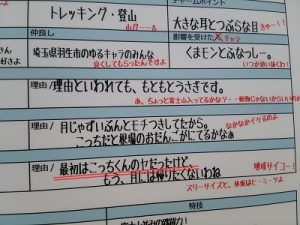 チャームポイント
トレッキング・登山
山ガール
大きな耳とつぶらな目
きゃー!!
仲良し
影響を受けた
キャラ
埼玉県羽生市のゆるキャラのみんな
良くしてもらったんですよ
くまモンとふなっしー。
いつか会いまくわ!
理由
理由といわれても、もともとうさぎです。
あ、ちょっと富士山入ってるかな?
理由/
月じゃずいぶんとモチつきしてたから。
なかなかイケるのよ
こっちだと根場のおだんごがにてるかなぁ
理由/
最初はこっちくんのヤだったけど
地球サイコー!
もう、月には帰りたくないわね
スリーサイズと、体重はヒ・ミ・ツよ
特技